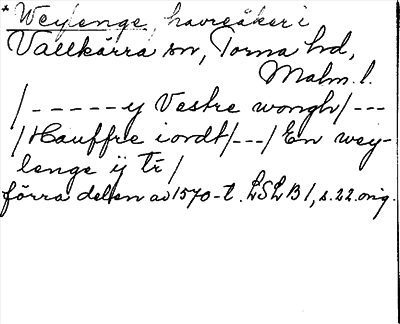 * Weylenge, havreåker i
Vallkärra sn, Torna hd,
Malm. l.
/ - - - - - y Vestre wongh / - - -
/ Hauffre iordt / - - - / En wey-
lenge ij tr /
förra delen av 1570-t. LSLB 1, s. 22 orig.